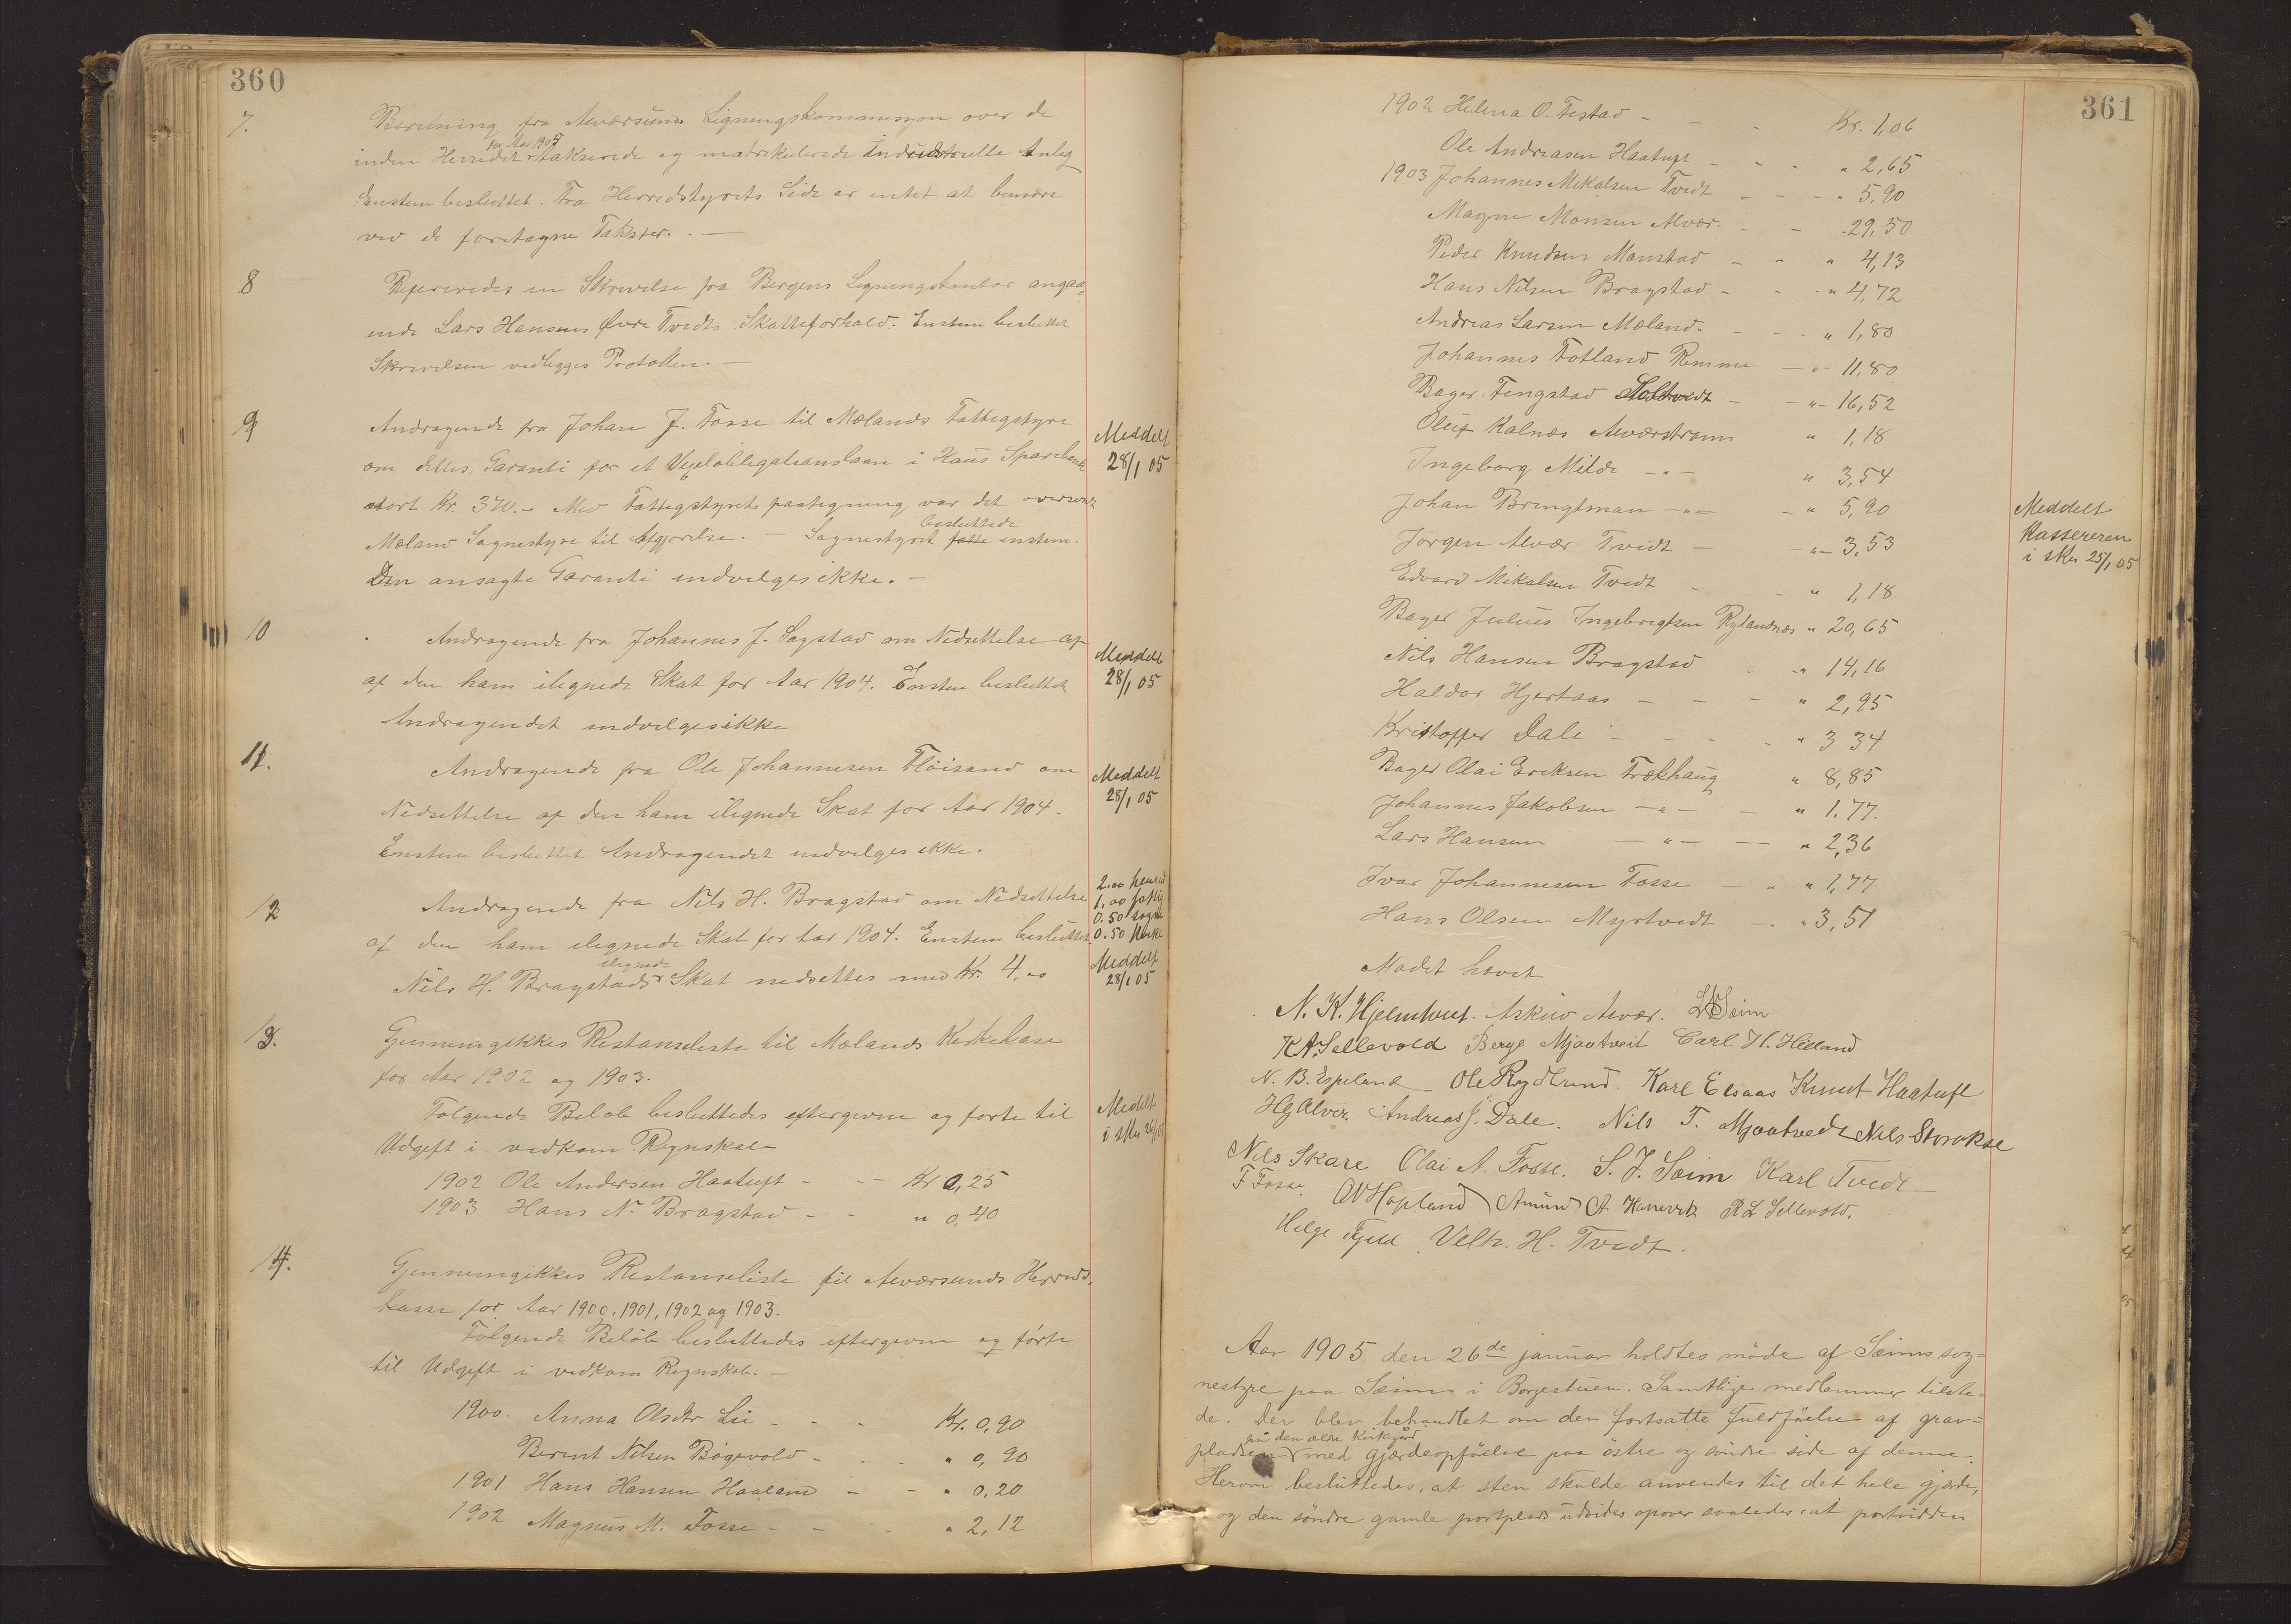 360
7. Beretning fra Alværsunds Ligningskommission over de
for Aar 1905
inden Herredet takserede og matrikulerede industrielle Anlæg
Enstem besluttet. Fra Herredstyrets Side er intet at bemærke
ved de foretagne Takster. —
8 Refereredes en Skrivelse fra Bergens Ligningskontor angaa=
ende Lars Hansens Øvre Tvedts Skatteforhold. Enstem besluttet
Skrivelsen vedlægges Protokollen. —
9 Andragende fra Johan J. Fosse til Mælands Fattigstyre
Meddelt
28/1 05
om dettes Garanti for et Vexelobligationslaan i Haus Sparebank
stort Kr. 370.- Med Fattigstyrets paategning var det oversendt
besluttede
Mæland Sognestyre til Afgjørelse. — Sognestyret fatte enstem.
Den ansøgte Garanti indvelges ikke. —
10 Andragende fra Johannes J. Sagstad om Nedsettelse af
Meddelt
28/1 05
af den ham ilignede Skat for Aar 1904. Enstem besluttet
Andragendet indvelges ikke
11. Andragende fra Ole Johannesen Fløisand om
Meddelt
28/1 05
Nedsettelse af den ham ilignede Skat for Aar 1904.
Enstem besluttet Andragendet indvelges ikke.
12 Andragende fra Nils H. Bragstad om Nedsettelse
2.00 herred
1,00 fattig
0.50 sogne
0.50 kirke
Meddelt
28/1 05
af den ham ilignede Skat for Aar 1904. Enstem besluttet
ilignede
Nils H. Bragstads Skat nedsettes med Kr. 4.00
13. Gjennemgikkes Restanseliste til Mælands Kirkekase
for Aar 1902 og 1903.
Følgende Beløb besluttedes eftergivne og førte til
Meddelt
i skr 26/1 05
Udgift i vedkom. Regnskab
1902 Ole Andersen Haatuft - - - Kr 0,25
1903 Hans N. Bragstad - - " 0,40
14. Gjennemgikkes Restanseliste til Alværsunds Herreds,
kasse for Aar 1900, 1901, 1902 og 1903.
Følgende Beløb besluttedes eftergivne og førte
til Udgift i vedkom Regnskab. —
1900. Anna Olsdtr Lie - - - Kr. 0,90
Berent Nilsen Bøgevold - - - " 0,90
1901 Hans Hansen Haaland - - " 0.20
1902 Magnus M. Fosse - - - " 2,12
361
1902 Helena O. Festad - - - Kr. 1,06
Ole Andreasen Haatuft - - - " 2,65
1903 Johannes Mikalsen Tvedt - - - " 5,90
Magne Monsen Alvær. - - 29,50
Peder Knudsen Monstad - - " 4,13
Hans Nilsen Bragstad - - - " 4,72
Andreas Larsen Mæland. - - - " 1,80
Johannes Totland Remme - " - 11,80
Bager Tengstad - - " - 16,52
Oluf Kalnæs Alværstrømm " 1,18
Ingeborg Milde - " - " 3,54
Johan Bringtman - " - - " 5,90
Meddelt
Kassereren
i skr 25/1 05
Jørgen Alvær Tvedt - - " - 3,53
Edvard Mikalsen Tvedt - - " 1,18
Bager Julius Ingebrigtsen Rylandnæs " 20,65
Nils Hansen Bragstad - " 14,16
Haldor Hjertaas - - - " 2,95
Kristoffer Dale - - - - " 3 34
Bager Olai Eriksen Trækhaug " 8,85
Johannes Jakobsen - " - - " 1.77.
Lars Hansen - " - - - " 2,36
Ivar Johannesen Fosse - " " 1,77
Hans Olsen Myrtvedt - . " 3,51
Mødet hævet
N. K. Hjelmtveit. Askiv Alvær. L Seim
K A. Sellevold Berge Mjaatveit Carl H. Helland
N. B. Espeland Ole Rydland. Karl Elsaas Knut Haatuft
Hg Alver. Andreas J. Dale. Nils T. Mjaatvedt Nils Storokse
Nils Skare Olai A. Fosse. S. J. Seim Karl Tvedt
F Fosse. O V Hopland Amund A R L Sellevold.
Helge Fjeld Velh. H. Tvedt.
Aar 1905 den 26de januar holdtes møde af Seims sog=
nestyre paa Seim i Borgestuen. Samtlige medlemmer tilste=
de. Der blev behandlet om den fortsatte fuldførelse af grav=
på den ældre kirkegård
pladsen med gjærdeopførelse paa østre og søndre side af denne.
Herom besluttedes, at sten skulde anvendes til det hele gjærde,
og den søndre gamle portplads udvides opover saaledes at portvidden